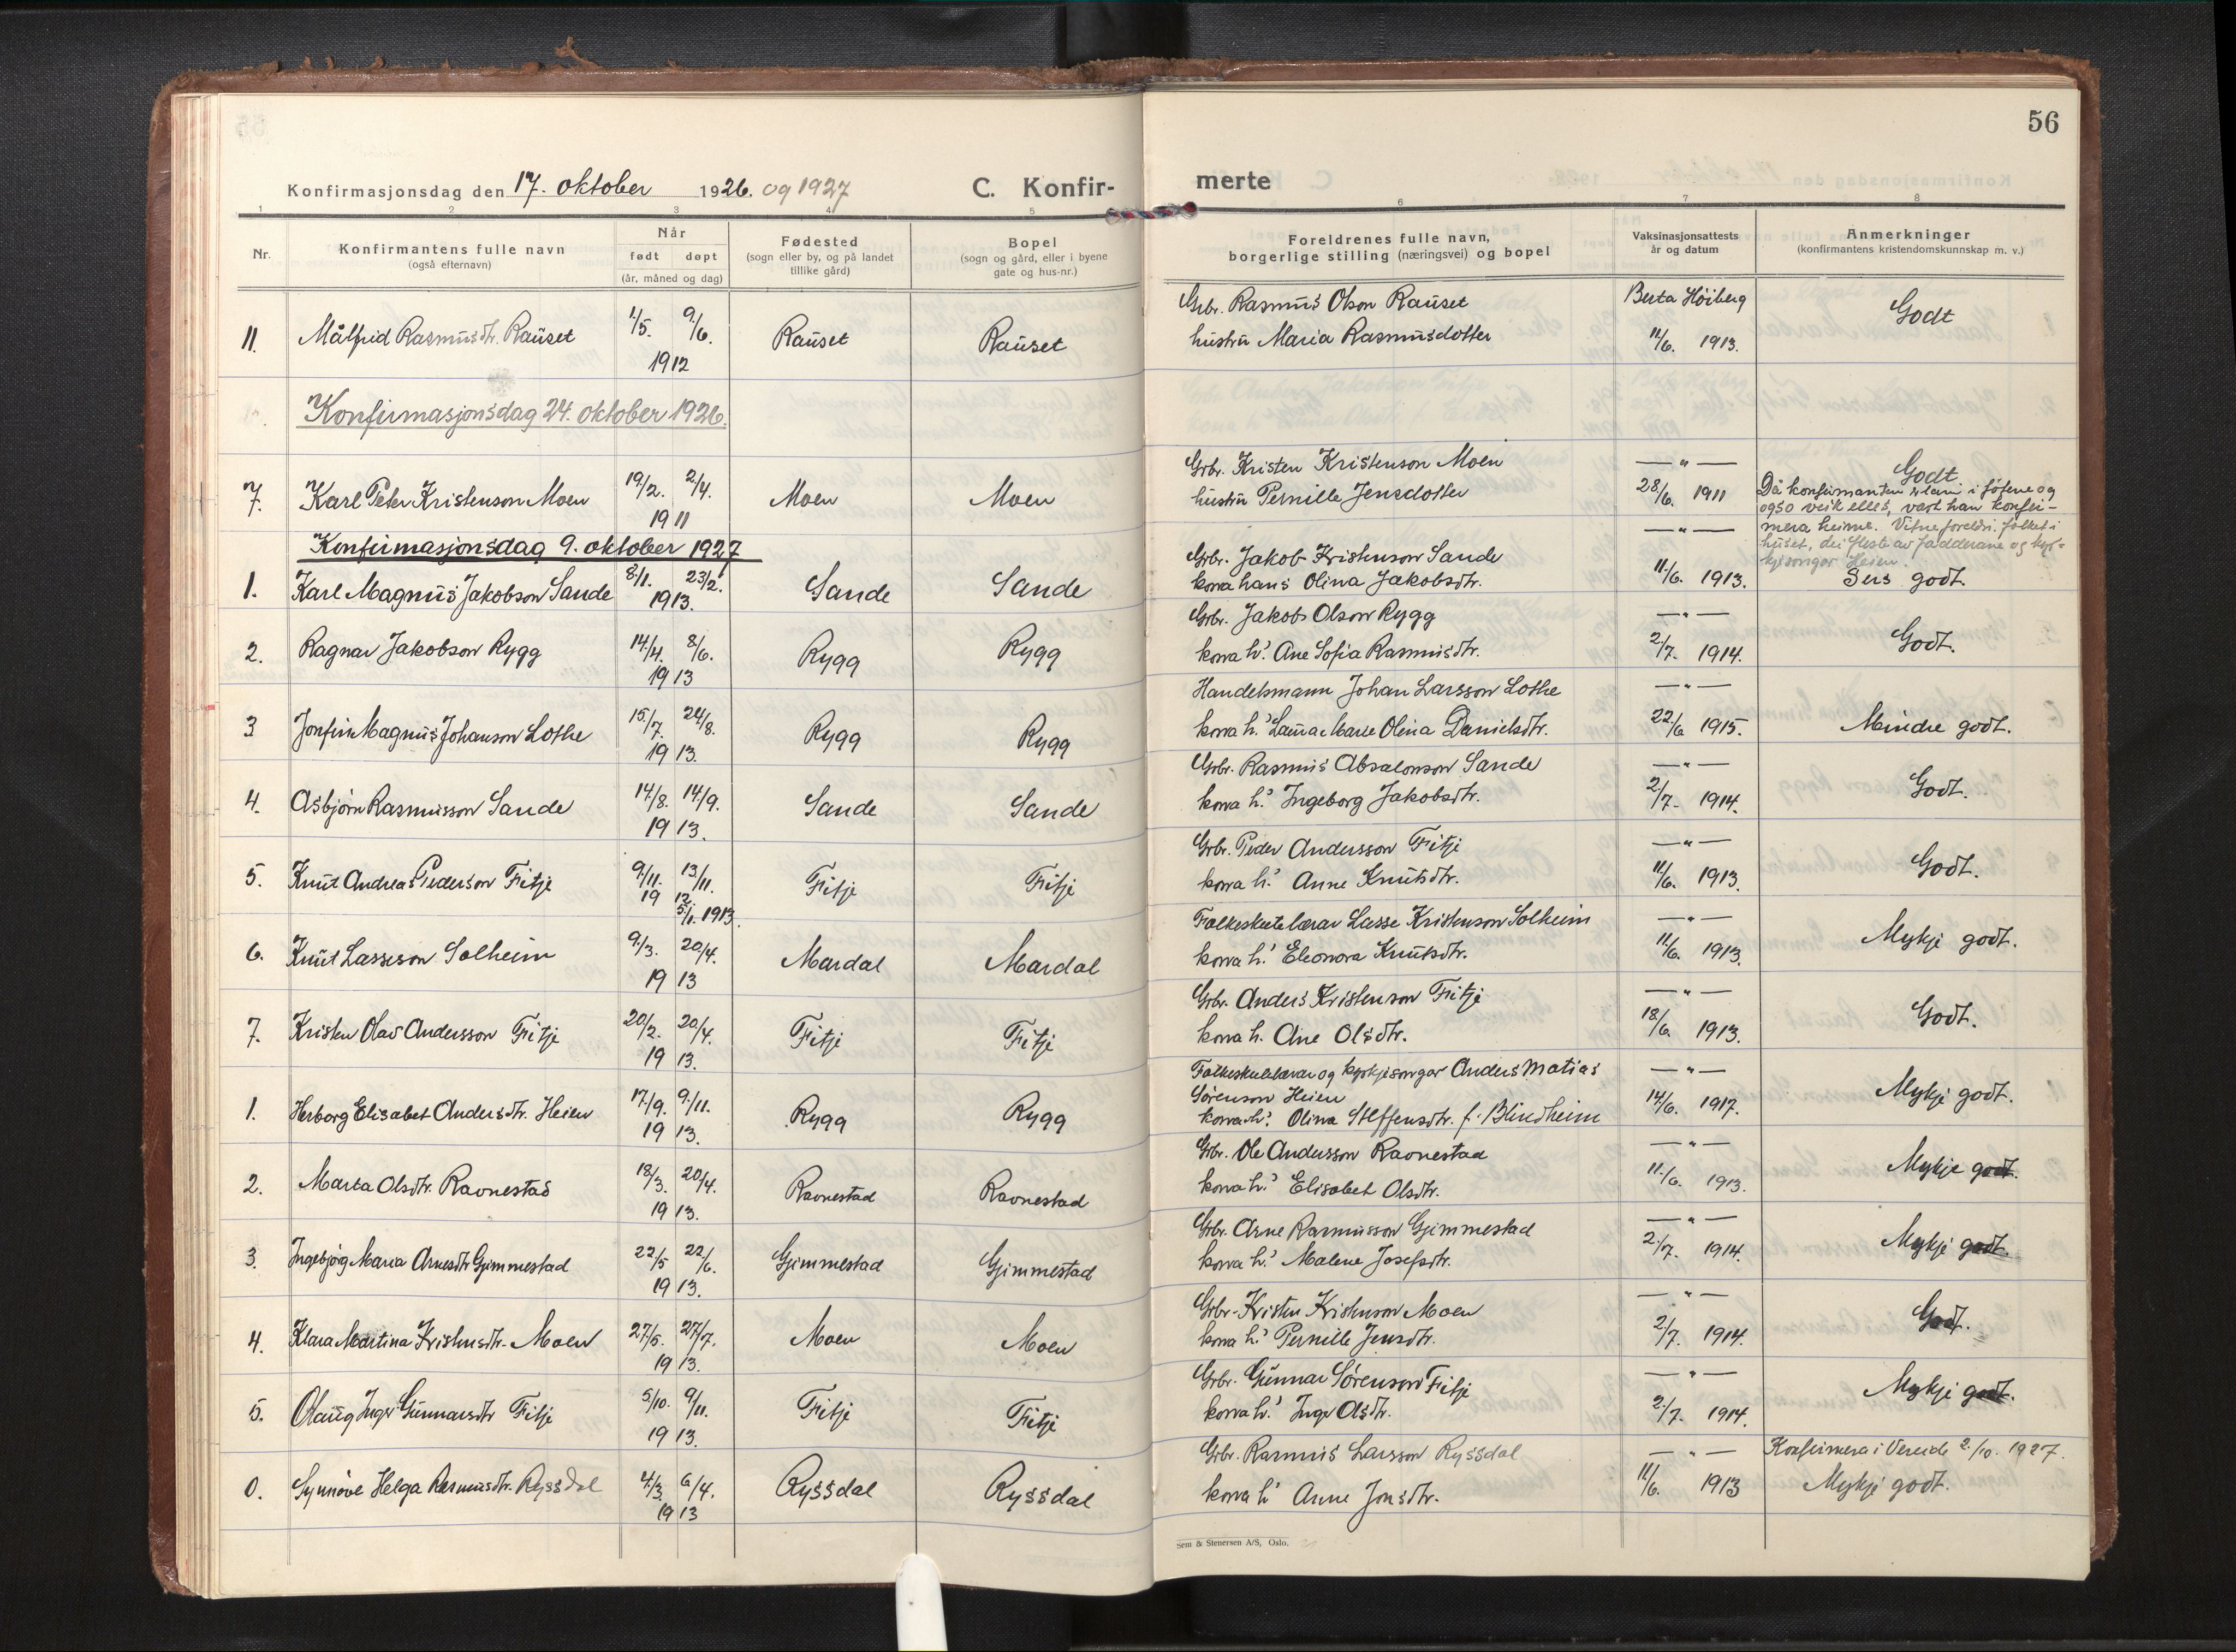 56
Konfirmasjonsdag den 17. oktober 1926. og 1927
C. Konfir-
merte
1 2 3 4 5 6 7 8
Nr.
Konfirmantens fulle navn
(også efternavn)
Når
født døpt
(år, måned og dag)
Fødested
(sogn eller by, og på landet
tillike gård)
Bopel
(sogn og gård, eller i byene
gate og hus-nr.)
Foreldrenes fulle navn,
borgerlige stilling (næringsvei) og bopel
Vaksinasjonsattests
år og datum
Anmerkninger
(konfirmantens kristendomskunnskap m. v.)
11. Målfrid Rasmusdtr. Rauset 1/5. 9/6. 1912 Rauset Rauset
Grbr. Rasmus Olson Rauset
hustru Maria Rasmusdotter
Berta Höiberg
11/6. 1913.
Godt
Konfirmasjonsdag 24. oktober 1926.
7. Karl Peter Kristenson Moen 19/2. 2/4. 1911 Moen Moen
Grbr. Kristen Kristenson Moen
hustru Pernille Jensdotter
— " —
28/6. 1911
Godt
Då konfirmanten er lam i föterne og
også veik elles, vart han konfir-
mera heime. Vitne foreldri, folket i
huset, dei fleste av fadderane og kyr-
kjesongar Heien.
Konfirmasjonsdag 9. oktober 1927
1. Karl Magnus Jakobson Sande 8/1. 23/2. 1913. Sande Sande
Grbr. Jakob Kristenson Sande
kona hans Olina Jakobsdtr.
— " —
11/6. 1913.
Sers godt.
2. Ragnar Jakobson Rygg 14/4. 8/6. 1913 Rygg Rygg
Grbr. Jakob Olson Rygg
kona h.' Ane Sofia Rasmusdtr.
— " —
2/7. 1914.
Godt.
3 Jonfinn Magnus Johanson Lothe 15/7. 24/8. 1913. Rygg Rygg
Handelsmann Johan Larsson Lothe
kona h.' Laura Marie Olina Danielsdtr.
— " —
22/6 1915.
Mindre godt.
4. Asbjörn Rasmusson Sande 14/8. 14/9. 1913. Sande Sande
Grbr. Rasmus Absalonson Sande
kona h.' Ingeborg Jakobsdtr.
— " —
2/7. 1914.
Godt.
5. Knut Andreas Pederson Fitje 9/11. 13/11. 1912. 5/1. 1913. Fitje Fitje
Grbr. Peder Andersson Fitje
kona h.' Anne Knutsdtr.
— " —
11/6. 1913.
Godt.
6. Knut Lasseson Solheim 9/3. 20/4. 1913 Mardal Mardal
Folkeskulelærar Lasse Kristenson Solheim
kona h.' Eleonora Knutsdtr.
— " —
11/6. 1913.
Mykje godt.
7. Kristen Olav Andersson Fitje 20/2. 20/4. 1913. Fitje Fitje
Grbr. Anders Kristenson Fitje
kona h. Ane Olsdtr.
— " —
18/6. 1913.
Godt.
1. Herborg Elisabet Andersdtr. Heien 17/9. 9/11. 1913. Rygg Rygg
Folkeskulelærar og kyrkjesongar Anders Matias
Sörenson Heien
kona h.' Olina Steffensdtr. f. Blindheim
— " —
14/6. 1917.
Mykje godt.
2. Marta Olsdtr. Ravnestad 18/3. 20/4. 1913. Ravnestad Ravnestad
Grbr. Ole Andersson Ravnestad
kona h.' Elisabet Olsdtr.
— " —
11./6. 1913.
Mykje godt.
3. Ingebjörg Maria Arnesdtr Gjimmestad 22/5 22/6. 1913. Gjimmestad Gjimmestad
Grbr. Arne Rasmusson Gjimmestad
kona h.' Malene Josefsdtr.
— " —
2./7. 1914.
Mykje godt.
4. Klara Martina Kristensdtr. Moen 27/5. 27/7. 1913. Moen Moen
Grbr. Kristen Kristenson Moen
kona h.' Pernille Jensdtr.
— " —
2/7. 1914.
Godt.
5. Olaug Inger Gunnarsdtr Fitje 5/10. 9/11. 1913. Fitje Fitje
Grbr. Gunnar Sörenson Fitje
kona h.' Inger Olsdtr.
— " —
2./7. 1914.
Mykje godt.
0. Synnöve Helga Rasmusdtr. Ryssdal 4/3. 6/4. 1913 Ryssdal Ryssdal
Grbr. Rasmus Larsson Ryssdal
kona h' Anne Jonsdtr.
— " —
11/6. 1913
Konfirmera i Vereide 2./10. 1927.
Mykje godt.
Sem & Stenersen A/S, Oslo.